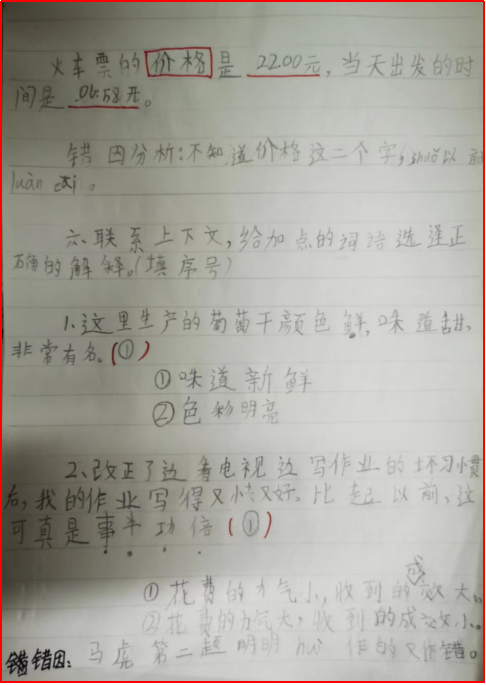 火车票的价格是 22.00元,当天出发的时
间是 06:58开。
错因分析:不知道价格这二个字,suǒ以
luàn cāi。
六、联系上下文,给加点的词语选择正
确的解释。(填序号)
1.这里生产的葡萄干颜色鲜,味道甜,
非常有名。(①)
①味道新鲜
②色彩明亮
2、改正了边看电视边写作业的坏习惯
后,我的作业写得又快又好。比起以前,这
可真是事半功倍(①)
①花费的力气小,收到的成效大。
②花费的力气大,收到的成效小。
错错因:马虎第二题明明huì作的又作错。